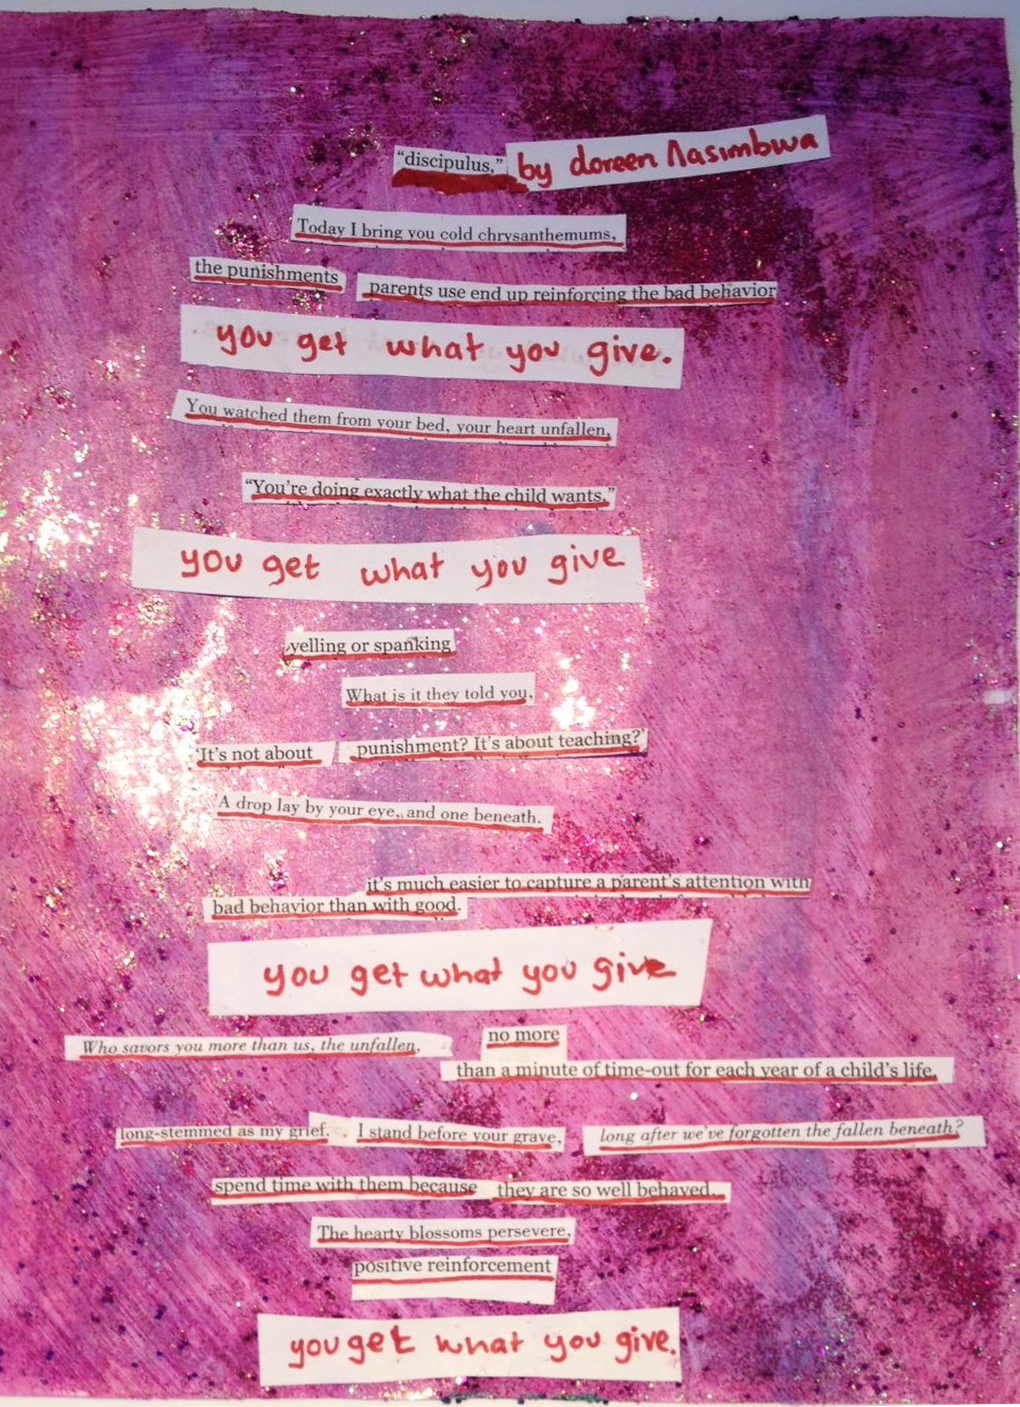 “discipulus,” by doreen Nasimbwa
Today I bring you cold chrysanthemums,
the punishments parents use end up reinforcing the bad behavior
you get what you give.
You watched them from your bed, your heart unfallen,
“You’re doing exactly what the child wants,”
you get what you give
yelling or spanking
What is it they told you,
‘It’s not about punishment? It’s about teaching?’
A drop lay by your eye, and one beneath.
it’s much easier to capture a parent’s attention with
bad behavior than with good.
you get what you give
Who savors you more than us, the unfallen, no more
than a minute of time-out for each year of a child’s life.
long-stemmed as my grief. I stand before your grave, long after we’ve forgotten the fallen beneath?
spend time with them because they are so well behaved..
The hearty blossoms persevere,
positive reinforcement
you get what you give.